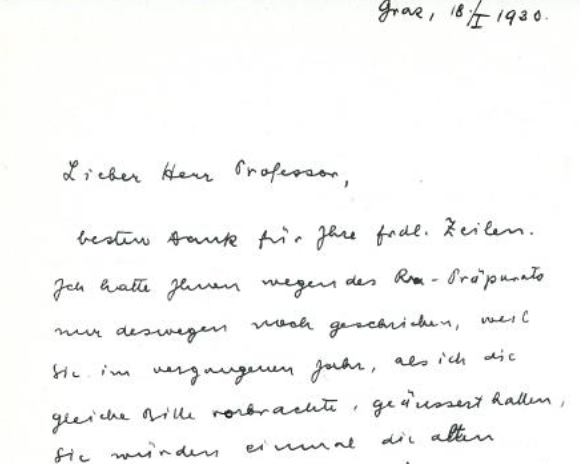 Graz, 18./I 1930.
Lieber Herr Professor,
besten Dank für Ihre frdl. Zeilen.
Ich hatte Ihnen wegen des Ra-Präparats
nur deswegen noch geschrieben, weil
Sie im vergangenen Jahr, als ich die
gleiche Bitte vorbrachte, geäussert hatten,
Sie würden einmal die alten